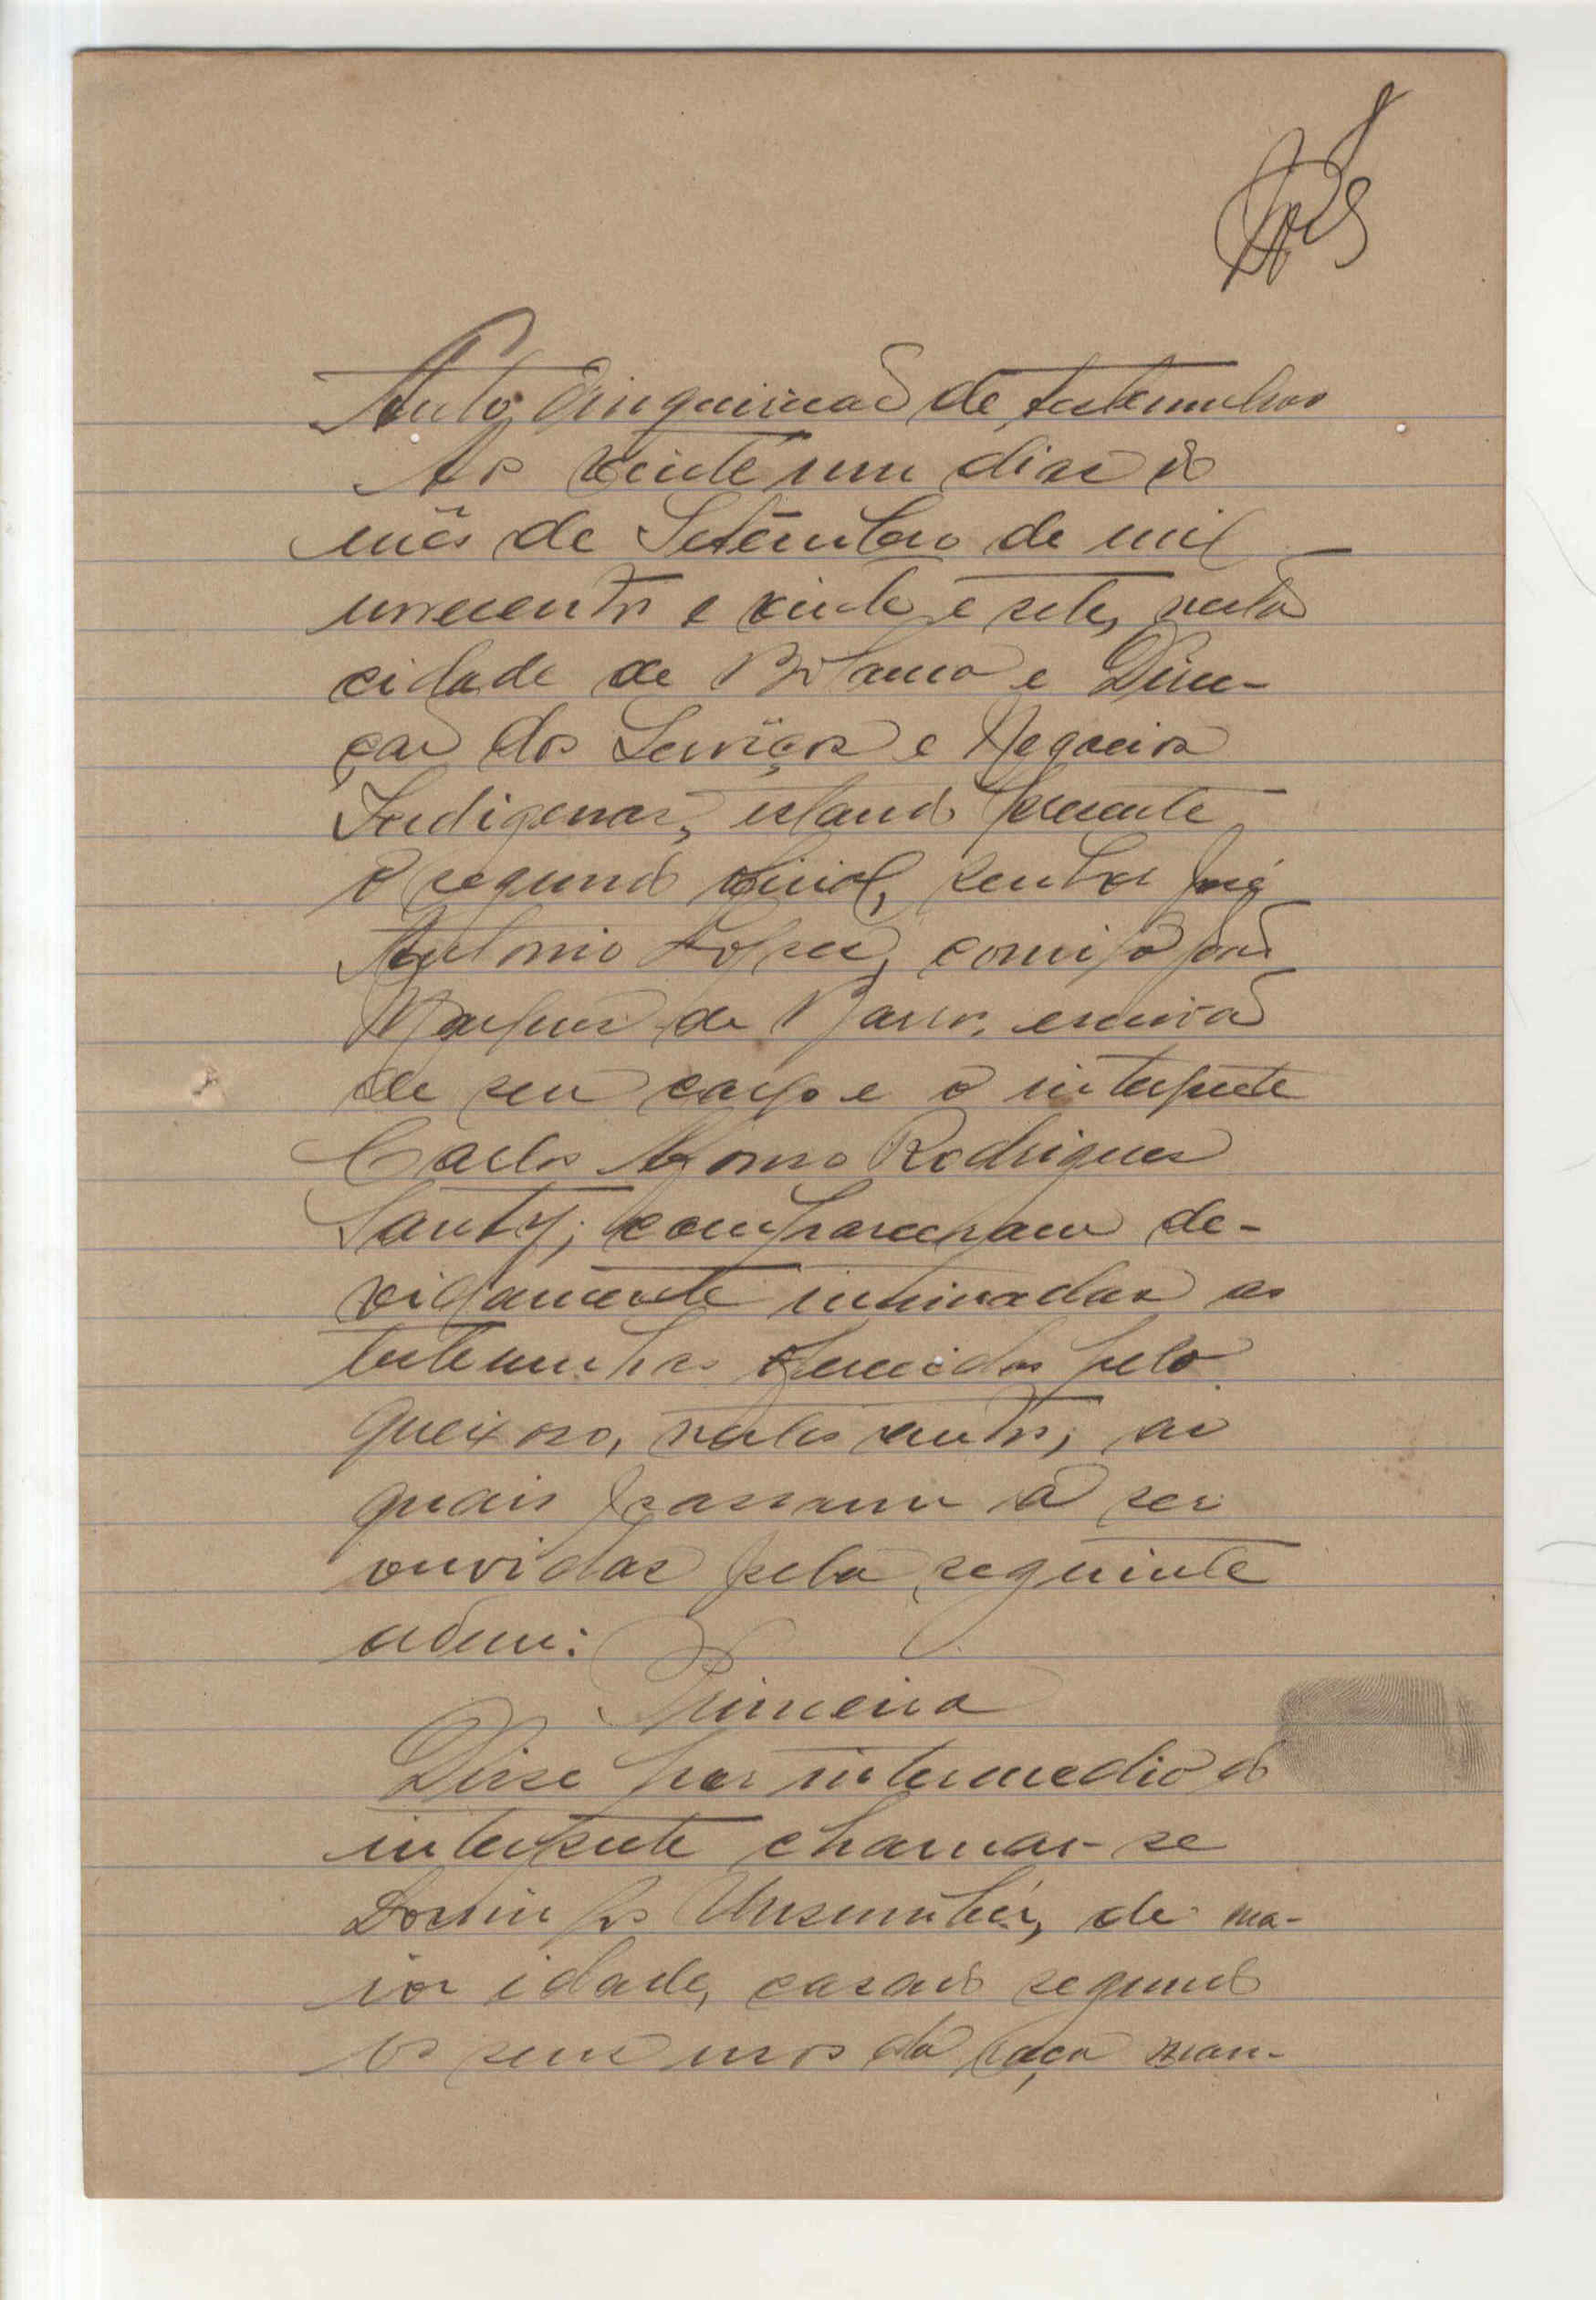 Auto d'inquirição de testemunhas
Aos vinte um dias do
mês de Setembro de mil
novecentos e vinte e sete, nesta
cidade de Bolama e Direc-
ção dos Serviços e Negocios
Indigenas, estando presente
o segundo oficial, senhor José
Antonio Lopes, comigo João
Marques de Barros, escrivão
de seu cargo e o interprete
Carlos Afonso Rodrigues
Santy; compareceram de-
vidamente intimadas as
testemunhas oferecidas pelo
queixoso, nestes autos, as
quais passaram a ser
ouvidas pela seguinte
ordem:
Primeira
Disse por intermedio do
interprete chamar-se
Domingos, de ma-
ior idade, casado segundo
os seus usos da raça man-